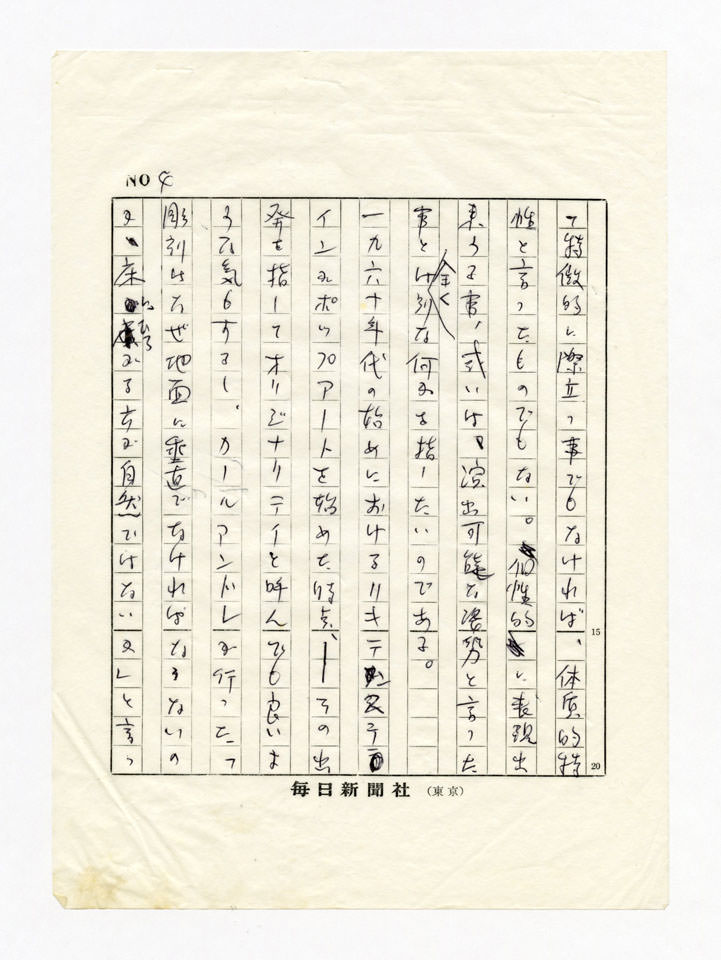 NO 4
て特徴的に際立つ事でもなければ、体質的特
性と言ったものでもない。個性的に表現出
来うる事、或いは、演出可能な姿勢と言った
事とは全く別な何かを指したいのである。
一九六十年代の始めにおけるリキテンスティ
インがポップアートを始めた時点、ーその出
発を指してオリジナリティと呼んでも良いよ
うな気もするし、カールアンドレが行ったっ
彫刻はなぜ地面に垂直でなければならないの
か、床にむろがる方が自然ではないかしと言っ
15
20
毎日新聞社（東京）